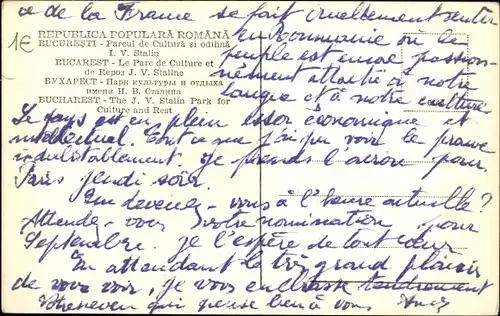 ce de la France se fait cruellement sentir
1€
REPUBLICA POPULARĂ ROMÂNĂ
BUCUREȘTI - Parcul de Cultură și odihnă
I. V. Stalin
BUCAREST - Le Parc de Culture et
de Repos J. V. Staline
БУХАРЕСТ - Парк культуры и отдыха
имени И. В. Сталина
BUCHAREST - The J. V. Stalin Park for
Culture and Rest
en Roumanie où le
peuple est encore passion-
nément attaché à notre
langue et à notre culture
Le pays est en plein essor économique et
intellectuel. Tout ce que j'ai pu voir le prouve
indubitablement. Je prends l'avion pour
Paris jeudi soir.
Que devenez-vous à l'heure actuelle?
Attendez-vous votre nomination pour
Septembre. Je l'espère de tout cœur
En attendant le très grand plaisir
de vous voir, je vous embrasse tendrement
qui pense bien à vous